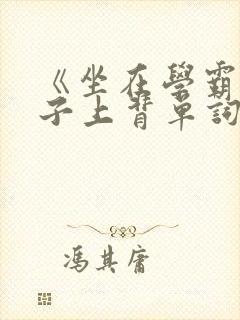 《坐在學霸
子上背单詞
馮其庸